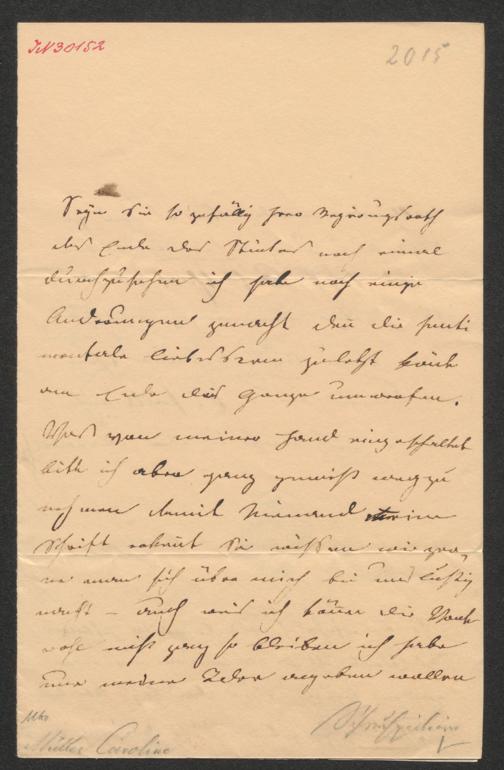 IN 30152
2015
Seyn Sie so gefällig Herr Regierungsrath
das Ende des Stückes noch einmal
durchzusehen ich habe noch einige
Änderungen gemacht den die senti
mentale liebesszene zuletzt könte
am Ende das Ganze umwerfen.
Was von meiner Hand eingeschaltet
bitt ich aber ganz gewiß wegzu
nehmen damit Niemand meine
Schrift erkent Sie wissen wie ger„
ne man sich über mich bei uns lustig
macht – auch weis ich könen die
nicht ganz so bleiben ich habe
nur meine Idee angeben wollen
Schauspielerin
Müller Caroline